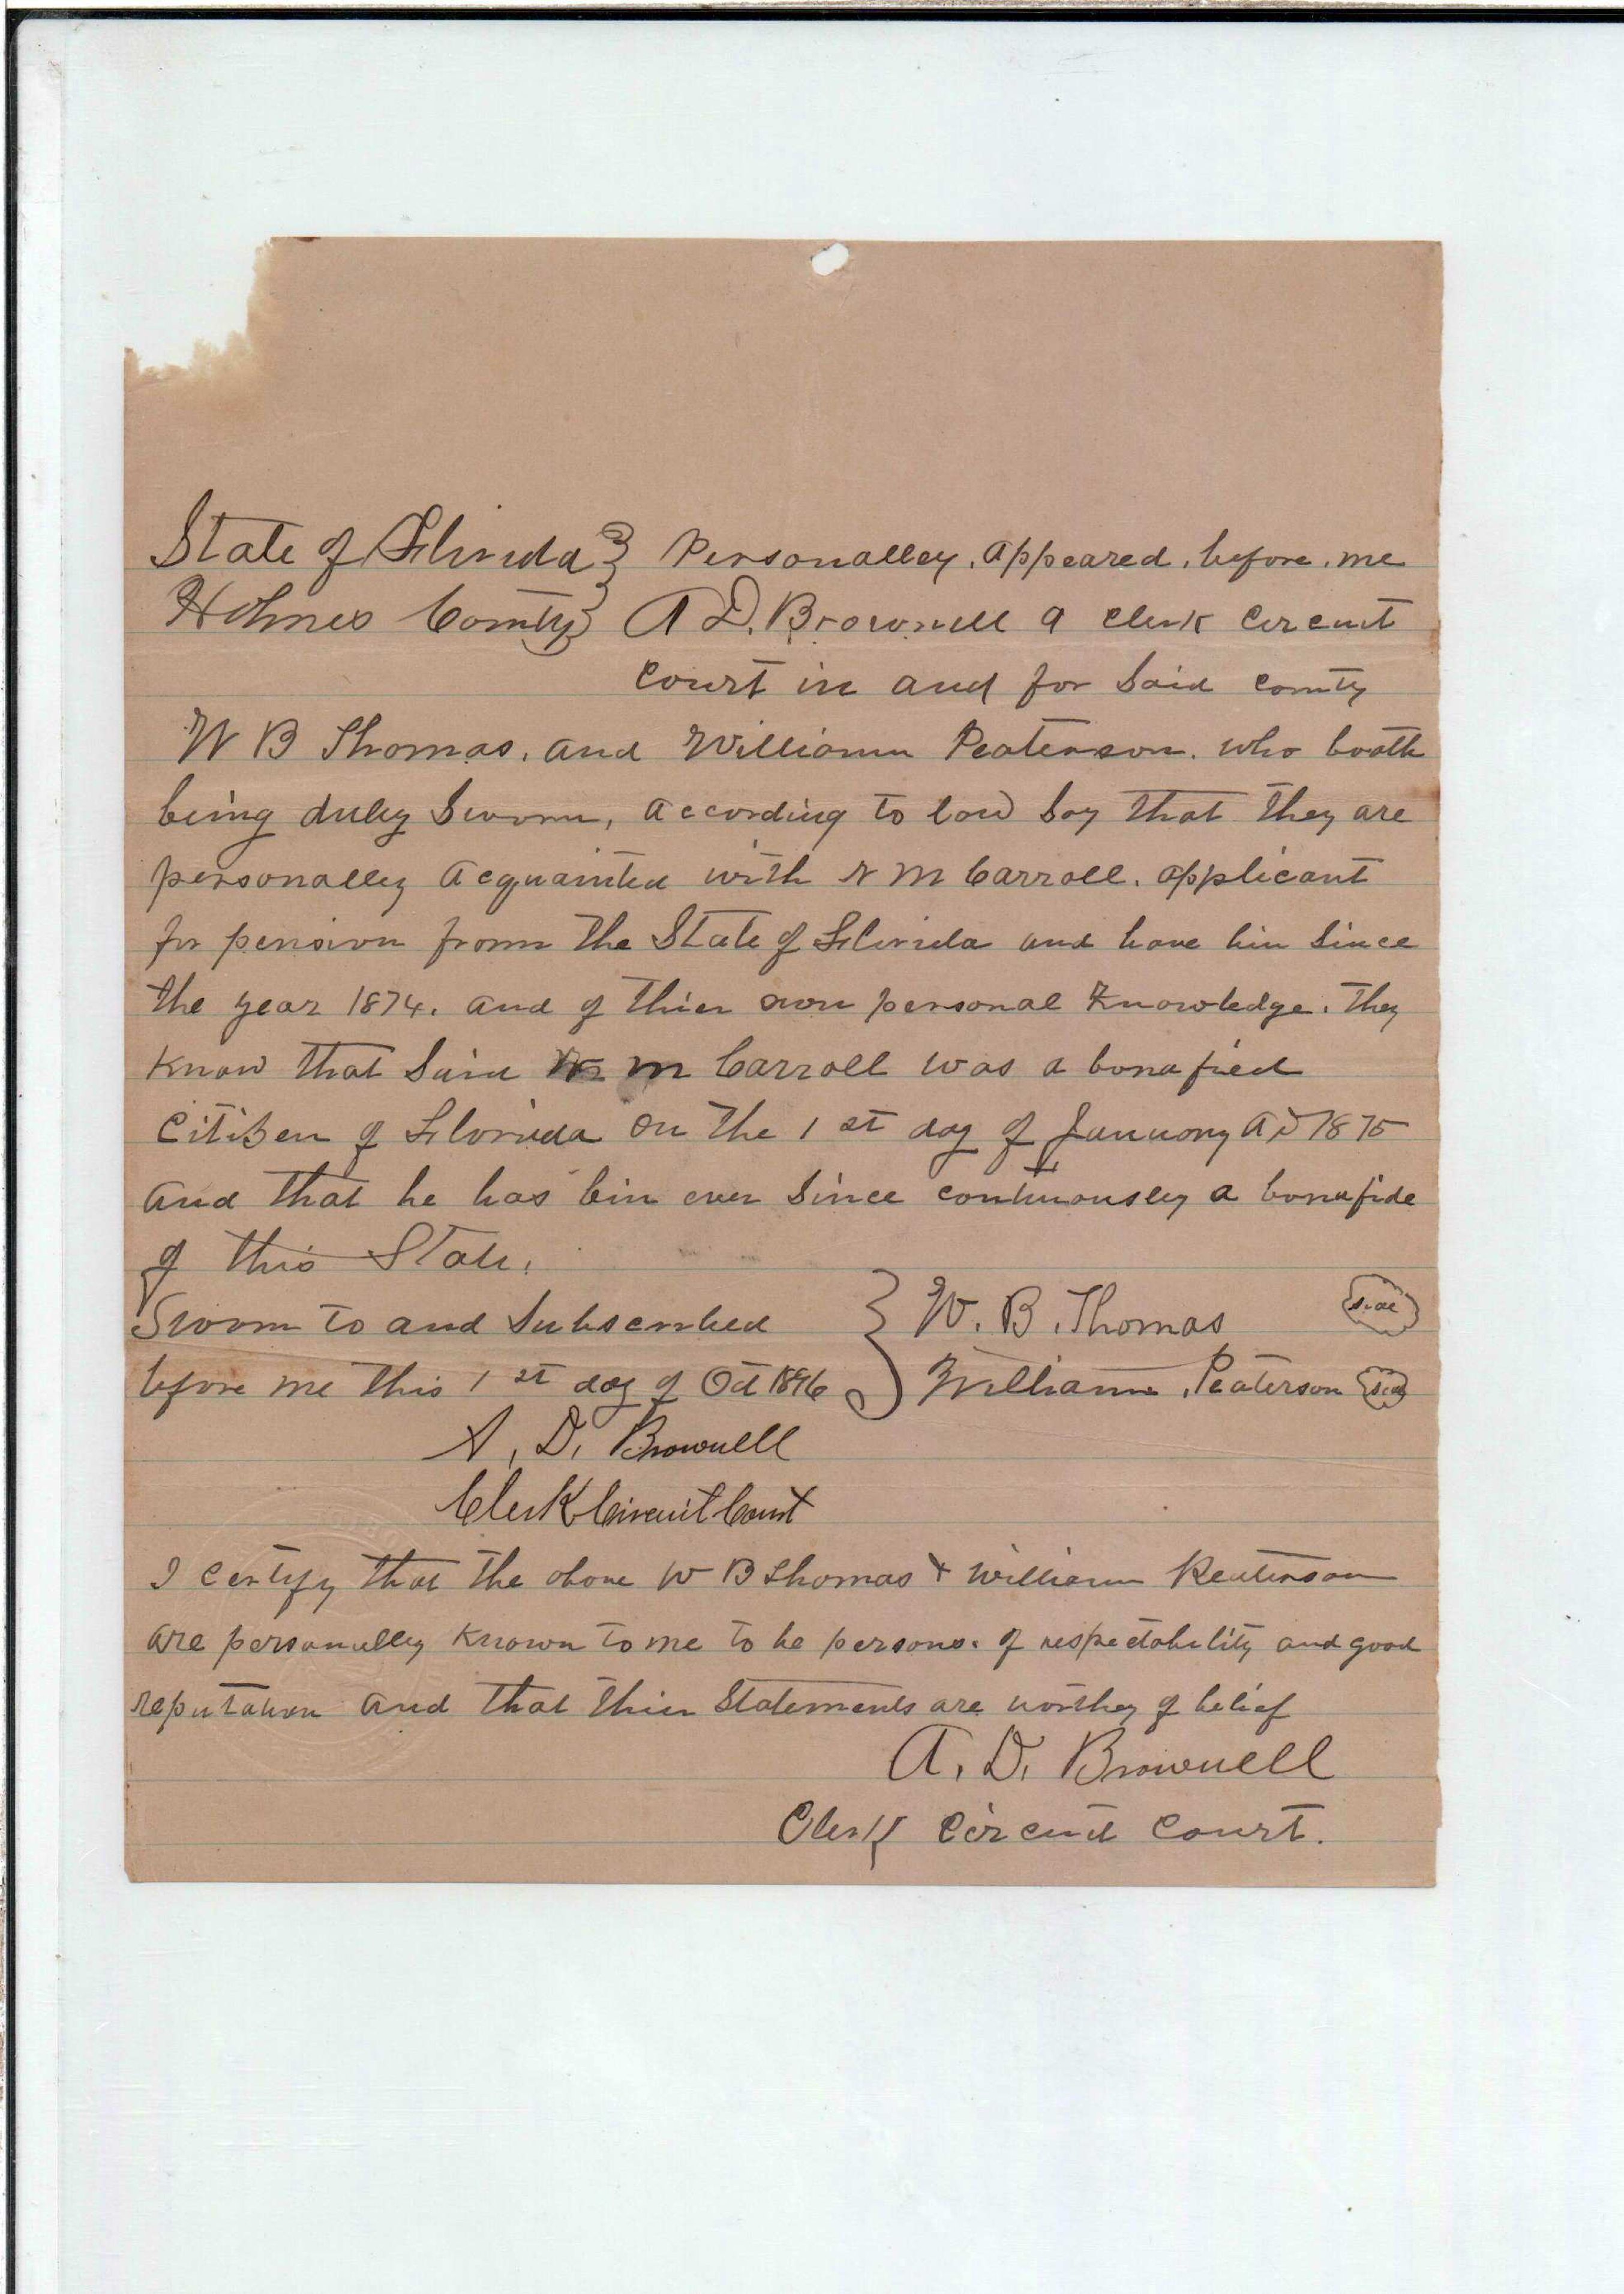 State of Florida } Personalley. appeared. before. me
Holmes County } A D. Brownell a Clerk Circuit
Court in and for Said County
W B Thomas. and William Peaterson. who booth
being duley Sworn, according to law Say that they are
personalley acquainted with N M Carroll. applicant
for pension from the State of Florida and have him Since
the year 1874. and of thier own personal Knowledge. they
Know that Said M Carroll was a bonafied
Citizen of Florida on the 1 st day of January AD 1875
and that he has bin ever Since continuousley a bonafide
of this State.
Sworn to and Subscribed } W. B. Thomas Seal
before me this 1 st day of Oct 1896 } William Peaterson Seal
A. D. Brownell
Clerk Circuit Court
I Certify that the above W B Thomas & William Peaterson
are personalley Known to me to be persons. of respectability and good
reputation and that thier Statements are worthey of belief
A. D. Brownell
Clerk Circuit Court.